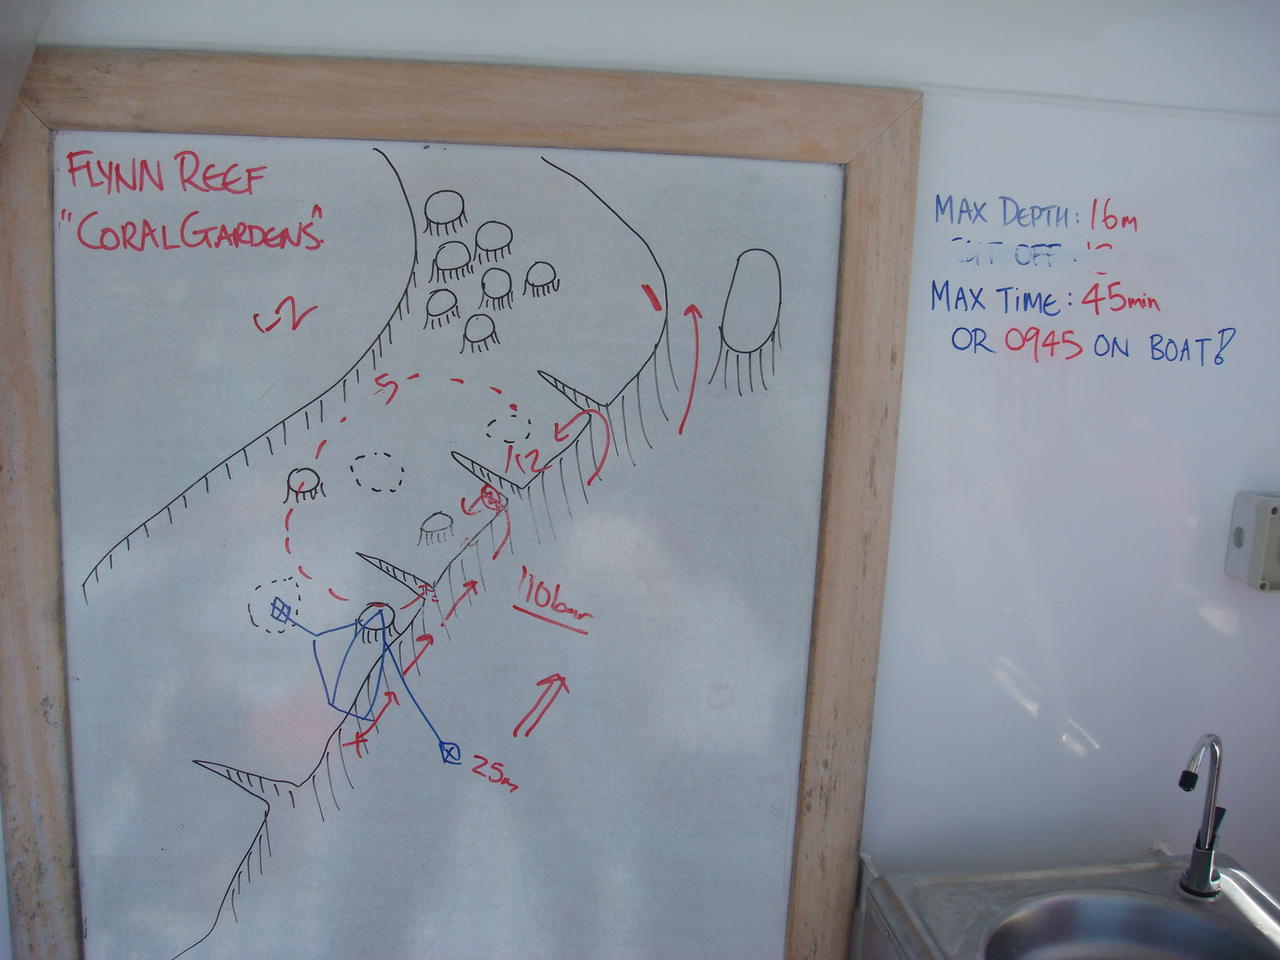 FLYNN REEF
"CORAL GARDENS"
5
12
110bar
25m
MAX DEPTH: 16m
CUT OFF:
MAX TIME: 45min
OR 0945 ON BOAT!